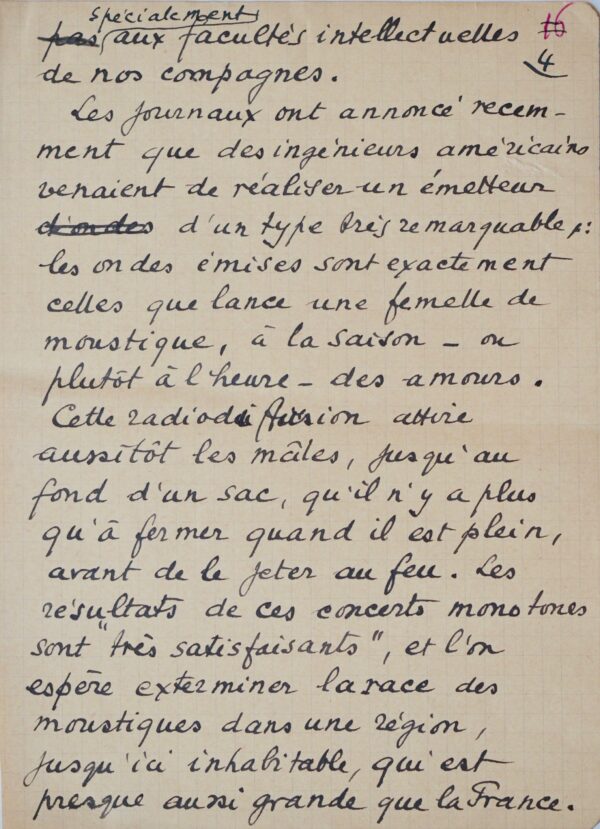 spécialement
pas aux facultés intellectuelles 16
de nos compagnes. 4
Les journaux ont annoncé recem-
ment que des ingénieurs américains
venaient de réaliser un émetteur
d'ondes d'un type très remarquable :
les ondes émises sont exactement
celles que lance une femelle de
moustique, à la saison - ou
plutôt à l'heure - des amours.
Cette radiodiffusion attire
aussitôt les mâles, jusqu'au
fond d'un sac, qu'il n'y a plus
qu'à fermer quand il est plein,
avant de le jeter au feu. Les
résultats de ces concerts monotones
sont "très satisfaisants", et l'on
espère exterminer la race des
moustiques dans une région,
jusqu'ici inhabitable, qui est
presque aussi grande que la France.